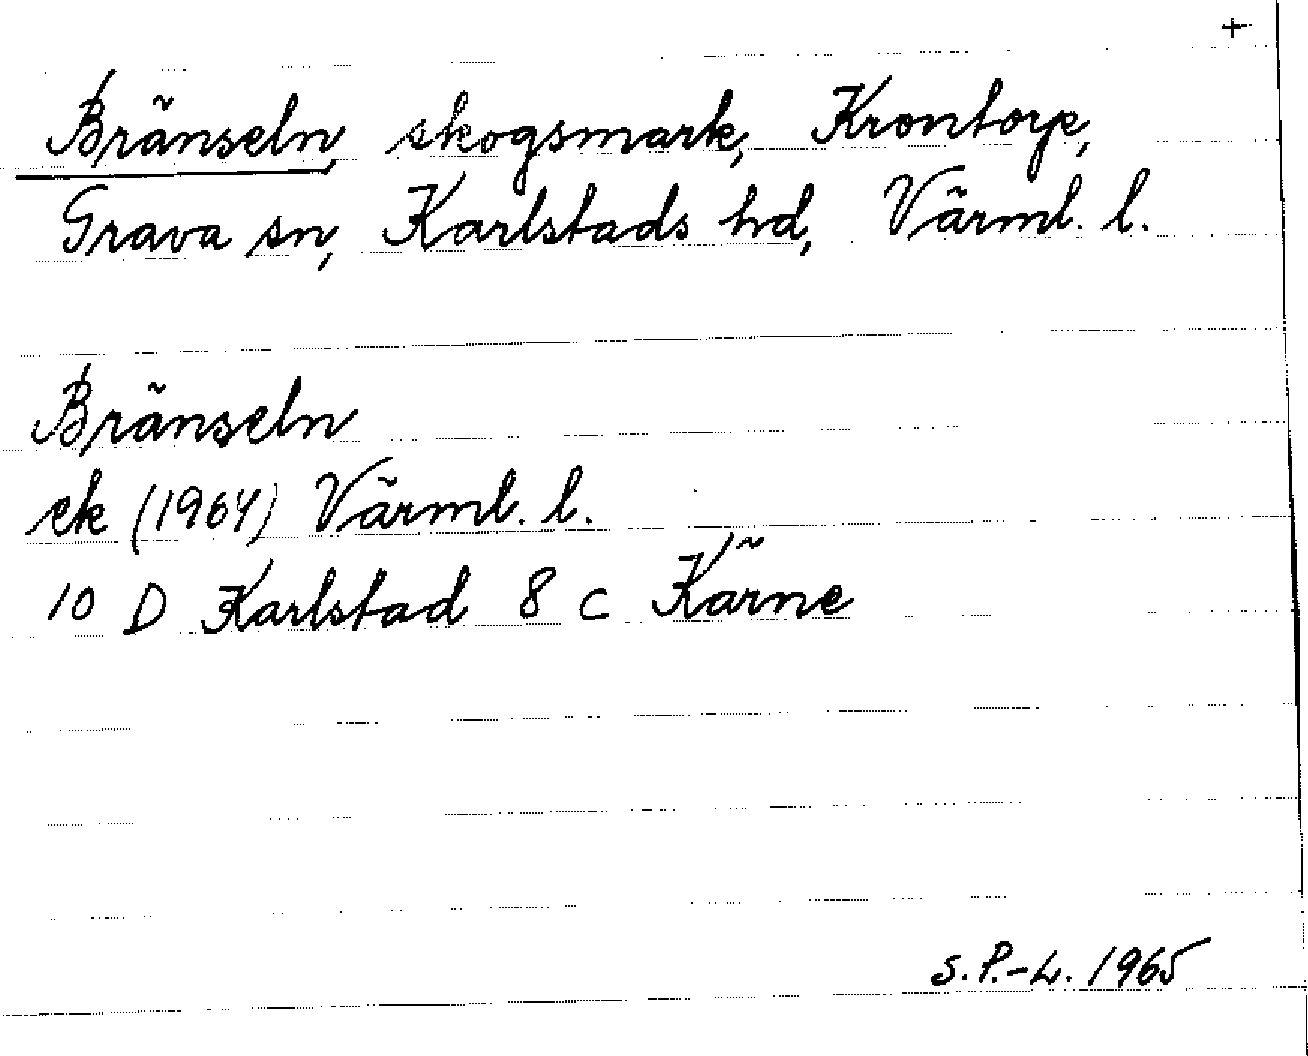 +
Bränseln, skogsmark, Krontorp,
Grava sn, Karlstads hd, Värml. l.
Bränseln
ek (1964) Värml. l.
10 D Karlstad 8 c Kärne
S.P.-L. 1965